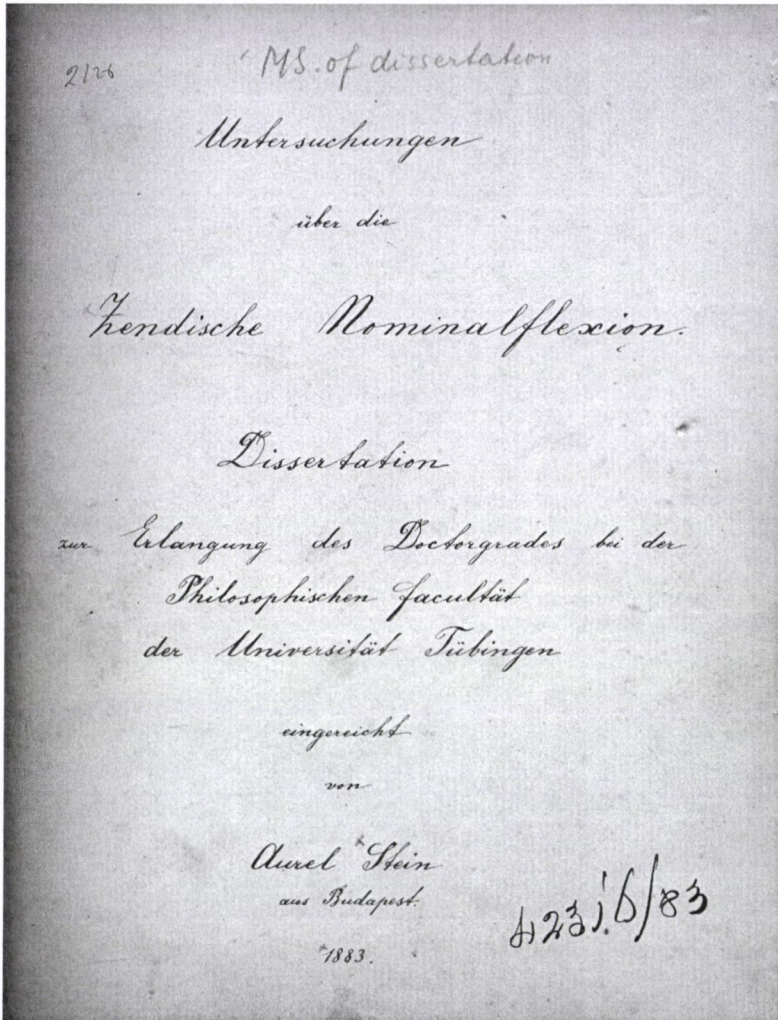 2/26
MS. of dissertation
Untersuchungen
über die
Zendische Nominalflexion.
Dissertation
zur Erlangung des Doctorgrades bei der
Philosophischen facultät
der Universität Tübingen
eingereicht
von
Aurel Stein
aus Budapest.
1883.